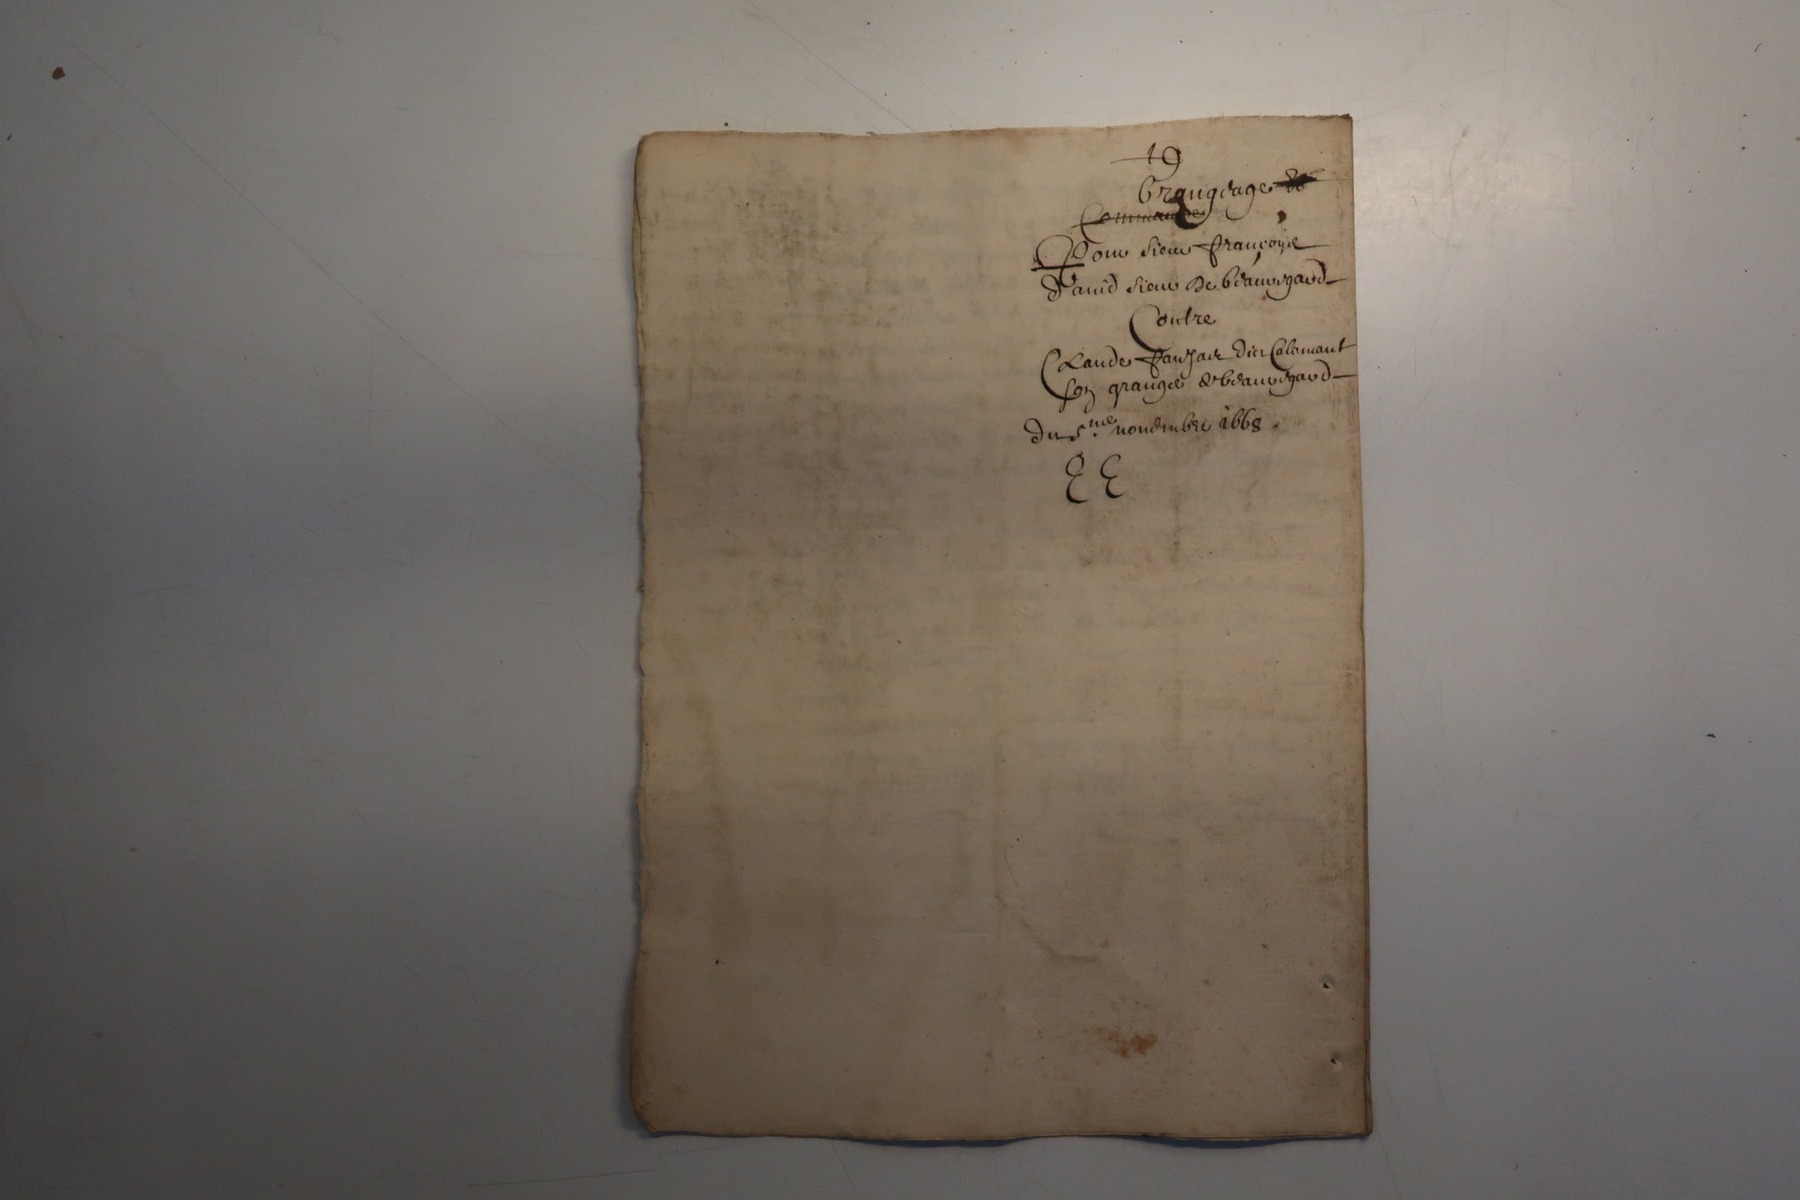 19
Grangeage &
Commande
Pour sieur françoys
David sieur de beauregard
Contre
Claude dict Colomant
son granger de beauregard
du 5.me novembre 1668
EE